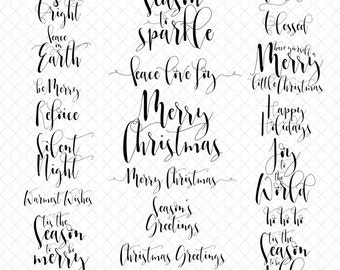 & Bright
Peace on
Earth
be Merry
Rejoice
Silent
Night
Warmest Wishes
tis the
Season
to be
merry
Season
to
sparkle
Peace Love Joy
Merry
Christmas
Merry Christmas
Season's
Greetings
Christmas Greetings
Blessed
have yourself a
Merry
little Christmas
Happy
Holidays
Joy
to the
World
ho ho ho
tis the
Season
to be